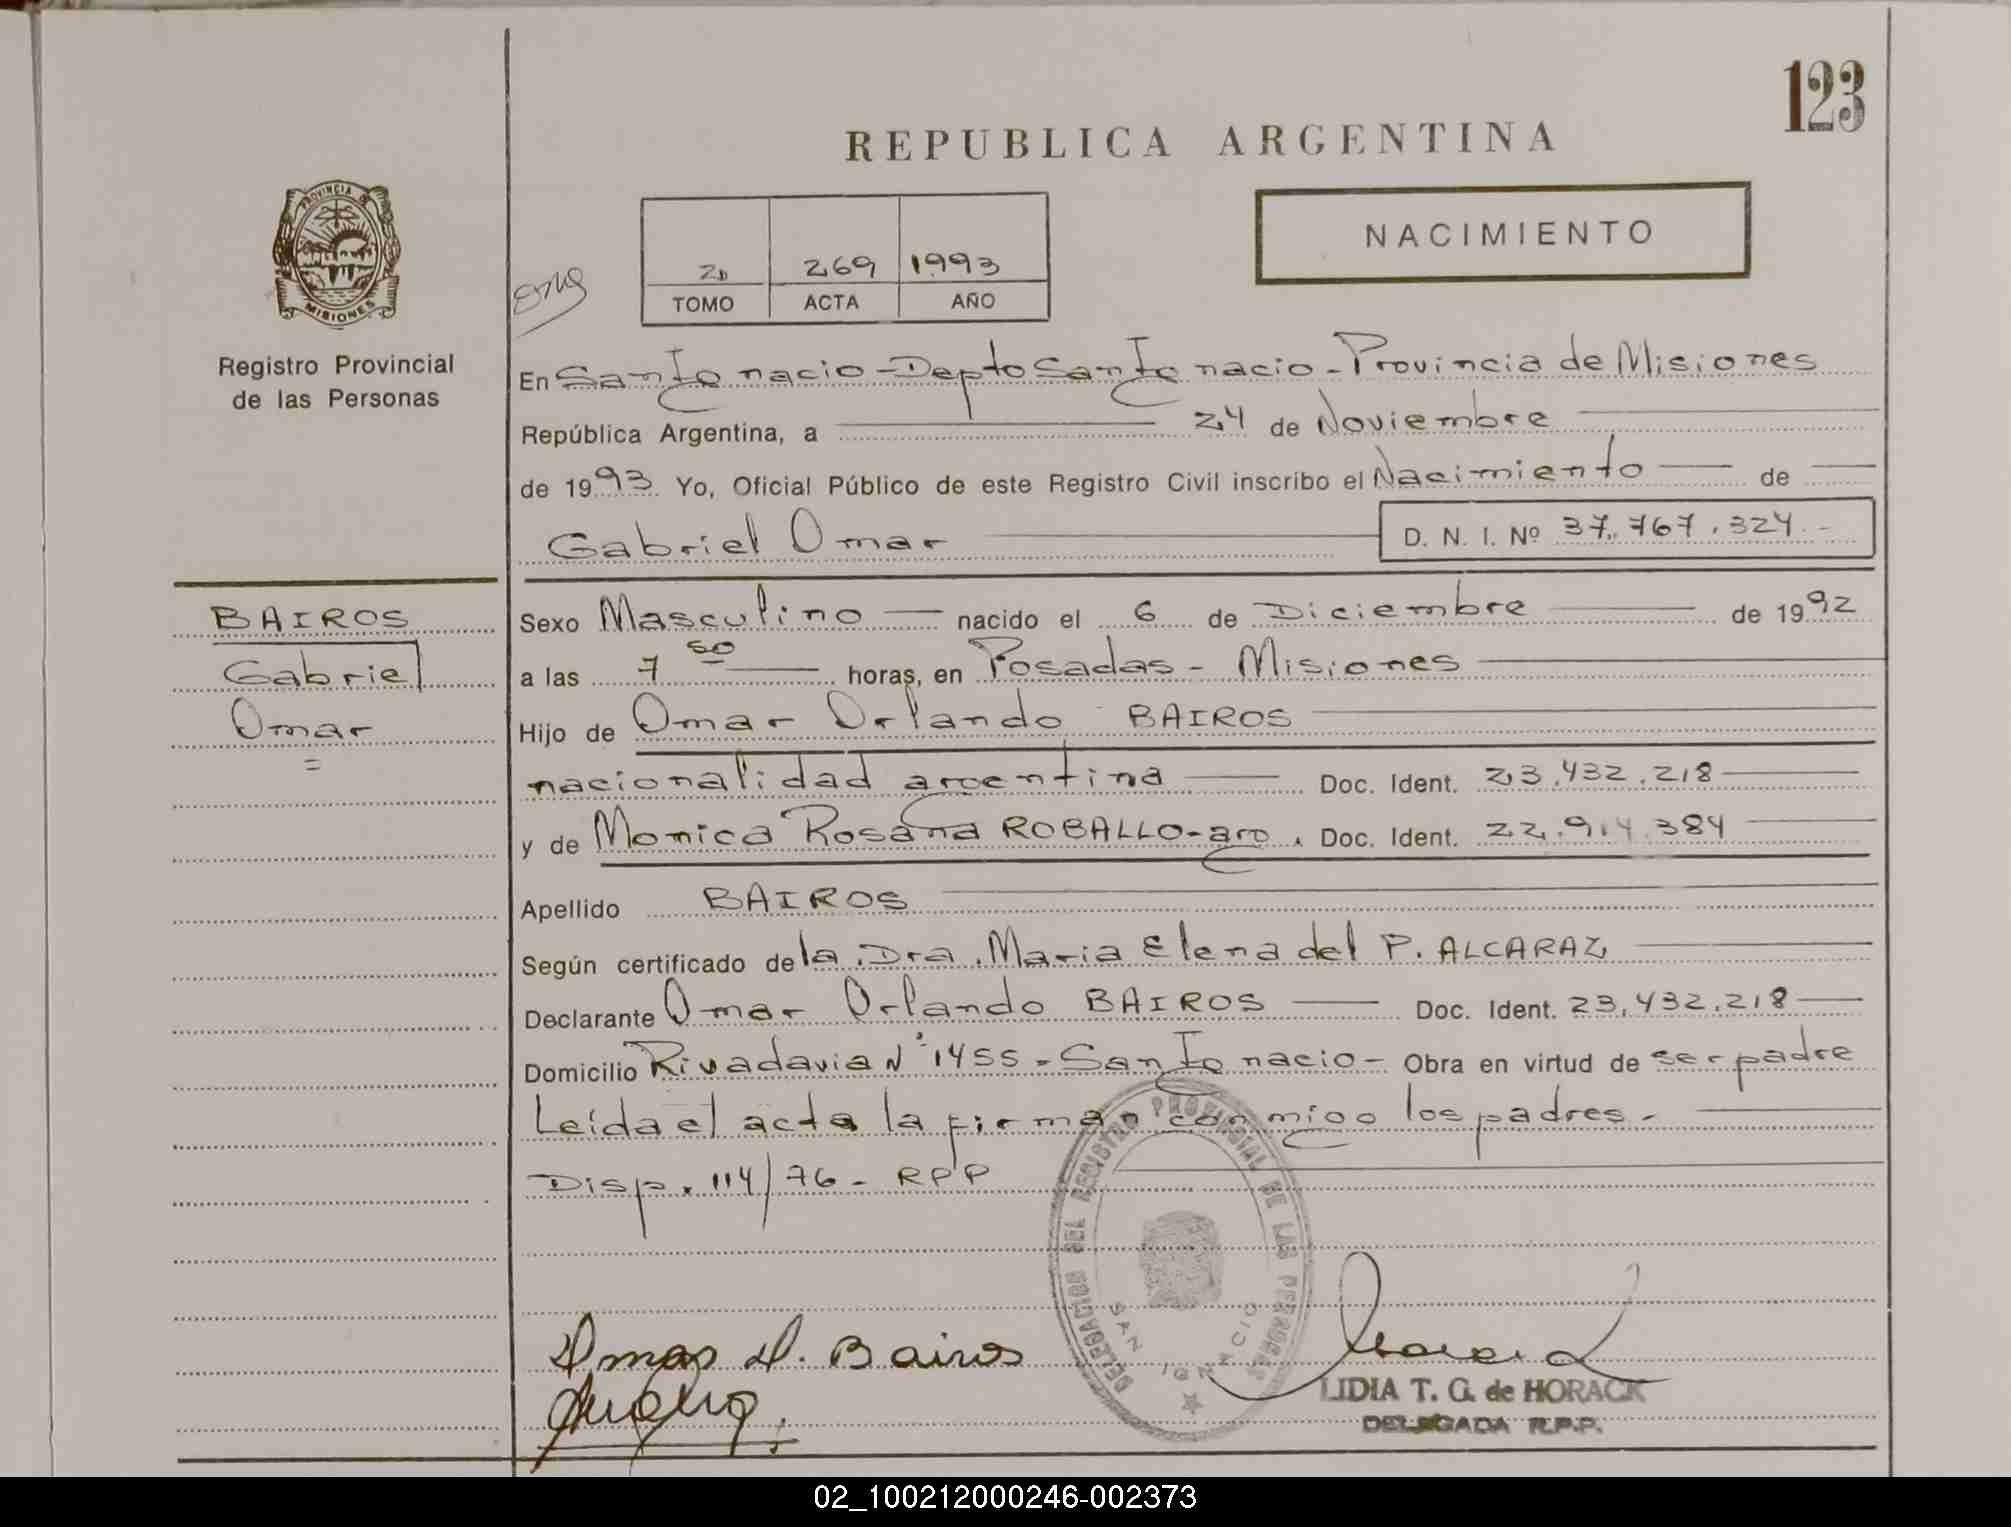 123
REPUBLICA ARGENTINA
PROVINCIA DE
MISIONES
Registro Provincial
de las Personas
2D 269 1993
TOMO ACTA AÑO
NACIMIENTO
En San Ignacio - Depto San Ignacio - Provincia de Misiones
República Argentina, a 24 de Noviembre
de 1993 Yo, Oficial Público de este Registro Civil inscribo el Nacimiento de
Gabriel Omar D. N. I. Nº 37.767.324.-
BAIROS
Gabriel
Omar
=
Sexo Masculino nacido el 6 de Diciembre de 1992
a las 7 50 horas, en Posadas - Misiones
Hijo de Omar Orlando BAIROS
nacionalidad argentina Doc. Ident. 23.432.218
y de Monica Rosana ROBALLO - arg. Doc. Ident. 22.914.384
Apellido BAIROS
Según certificado de la Dra. Maria Elena del P. ALCARAZ
Declarante Omar Orlando BAIROS Doc. Ident. 23.432.218
Domicilio Rivadavia Nº 1455 - San Ignacio - Obra en virtud de ser padre
Leída el acta la firman conmigo los padres.-
Disp. 114/76 - RPP
DELEGACION DEL REGISTRO PROVINCIAL DE LAS PERSONAS
SAN IGNACIO
Omar O. Bairos
LIDIA T. G. de HORACK
DELEGADA R.P.P.
02_100212000246-002373